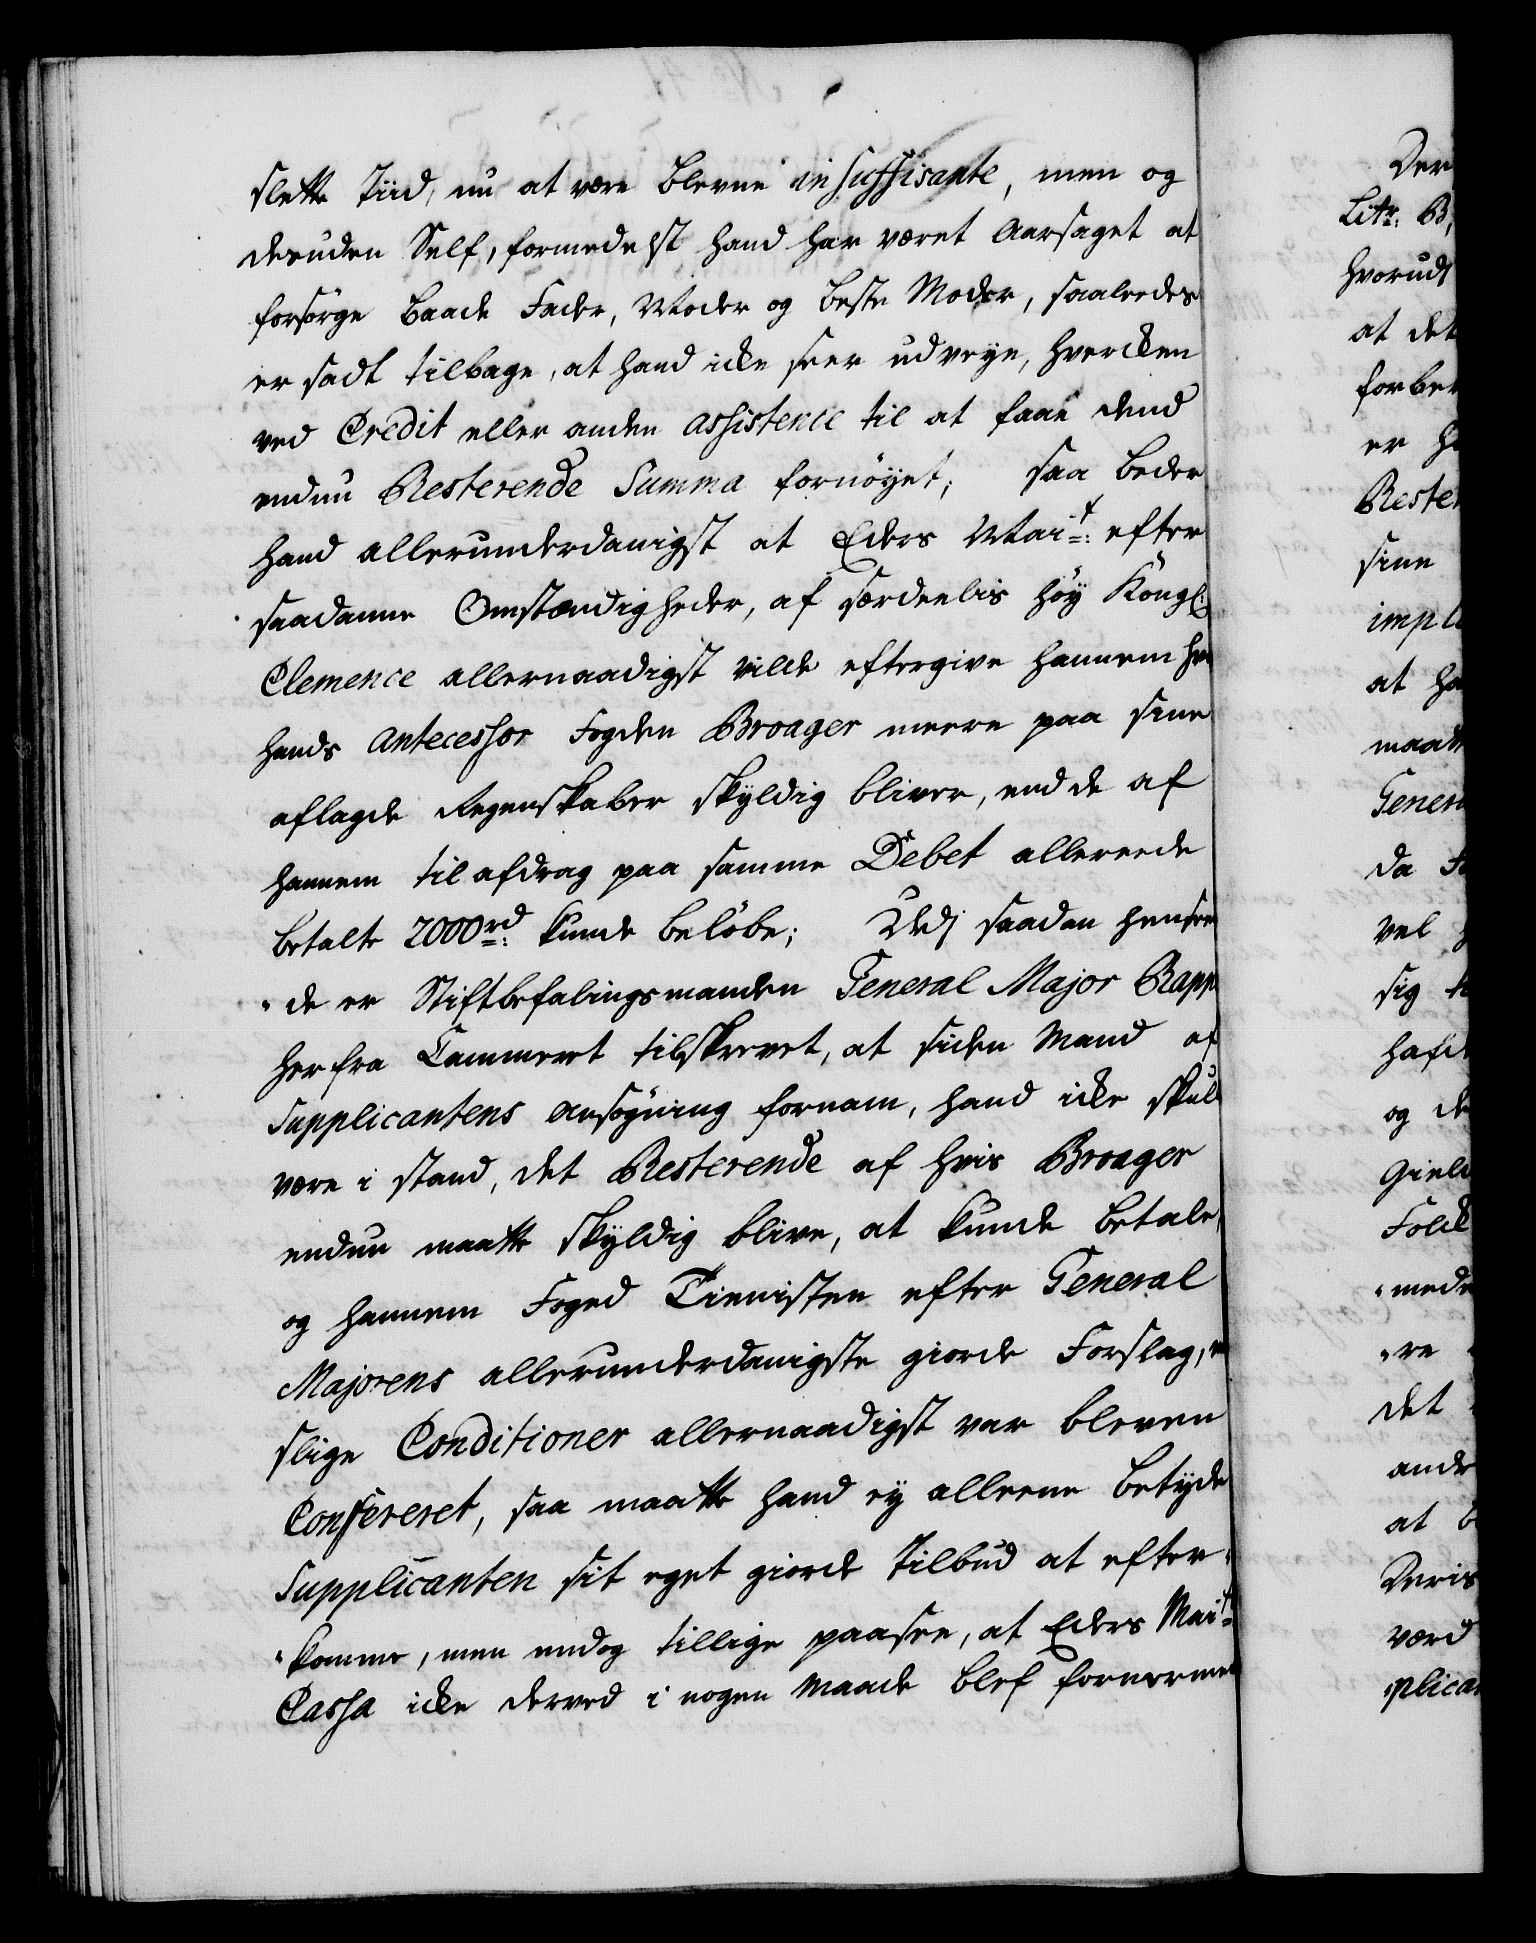 slette Tiid, nu at være blevne insuffisante, men og
desuden Self, formedelst hand har været Aarsaget at
forsörge baade Fader, Moder og beste Moder, saaledes
er sadt tilbage, at hand icke seer udveye, hvercken
ved Credit eller anden assistence til at faae dend
endnu Resterende Summa fornöyet; saa beder
hand allerunderdanigst at Eders Mait: efter
saadanne Omstændigheder, af særdeelis höy Kongl:
Clemence allernaadigst vilde eftergive hannem hvis
hands Antecessor Fogden Broager meere paa sine
aflagde Regenskaber skyldig bliver, end de af
hannem til afdrag paa samme Debet allereede
betalte 2000rd: kunde belöbe; Udj saadan henseen
de er Stiftbefalingsmanden General Major Rapp
her fra Cammeret tilskrevet, at siden Mand af
Supplicantens ansögning fornam, hand icke skulle
være i stand, det Resterende af hvis Broager
endnu maatte skyldig blive, at kunde betale,
og hannem Foged Tienisten efter General
Majorens allerunderdanigste giorde Forslag,
slige Conditioner allernaadigst var bleven
Confereret, saa maatte hand ey alleene betyde
Supplicanten sit eget giorde Tilbud at efter
komme, men endog tillige paasee, at Eders Mait:
Cassa icke derved i nogen Maade blef fornermet
Der
Litr: B,
hvorudj
at det
forbe
er h
Rester
sine
impl
at ha
maatte
Genera
da
vel
sig
hafde
og de
Giel
Folck
mede
re
det
andr
at b
Deris
værd
plican